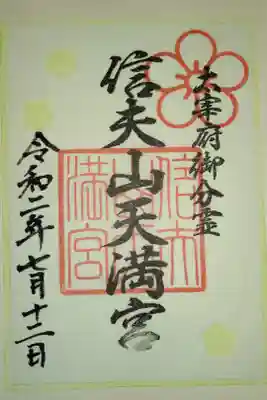 太宰府御分霊
信夫山天満宮
令和二年七月十二日